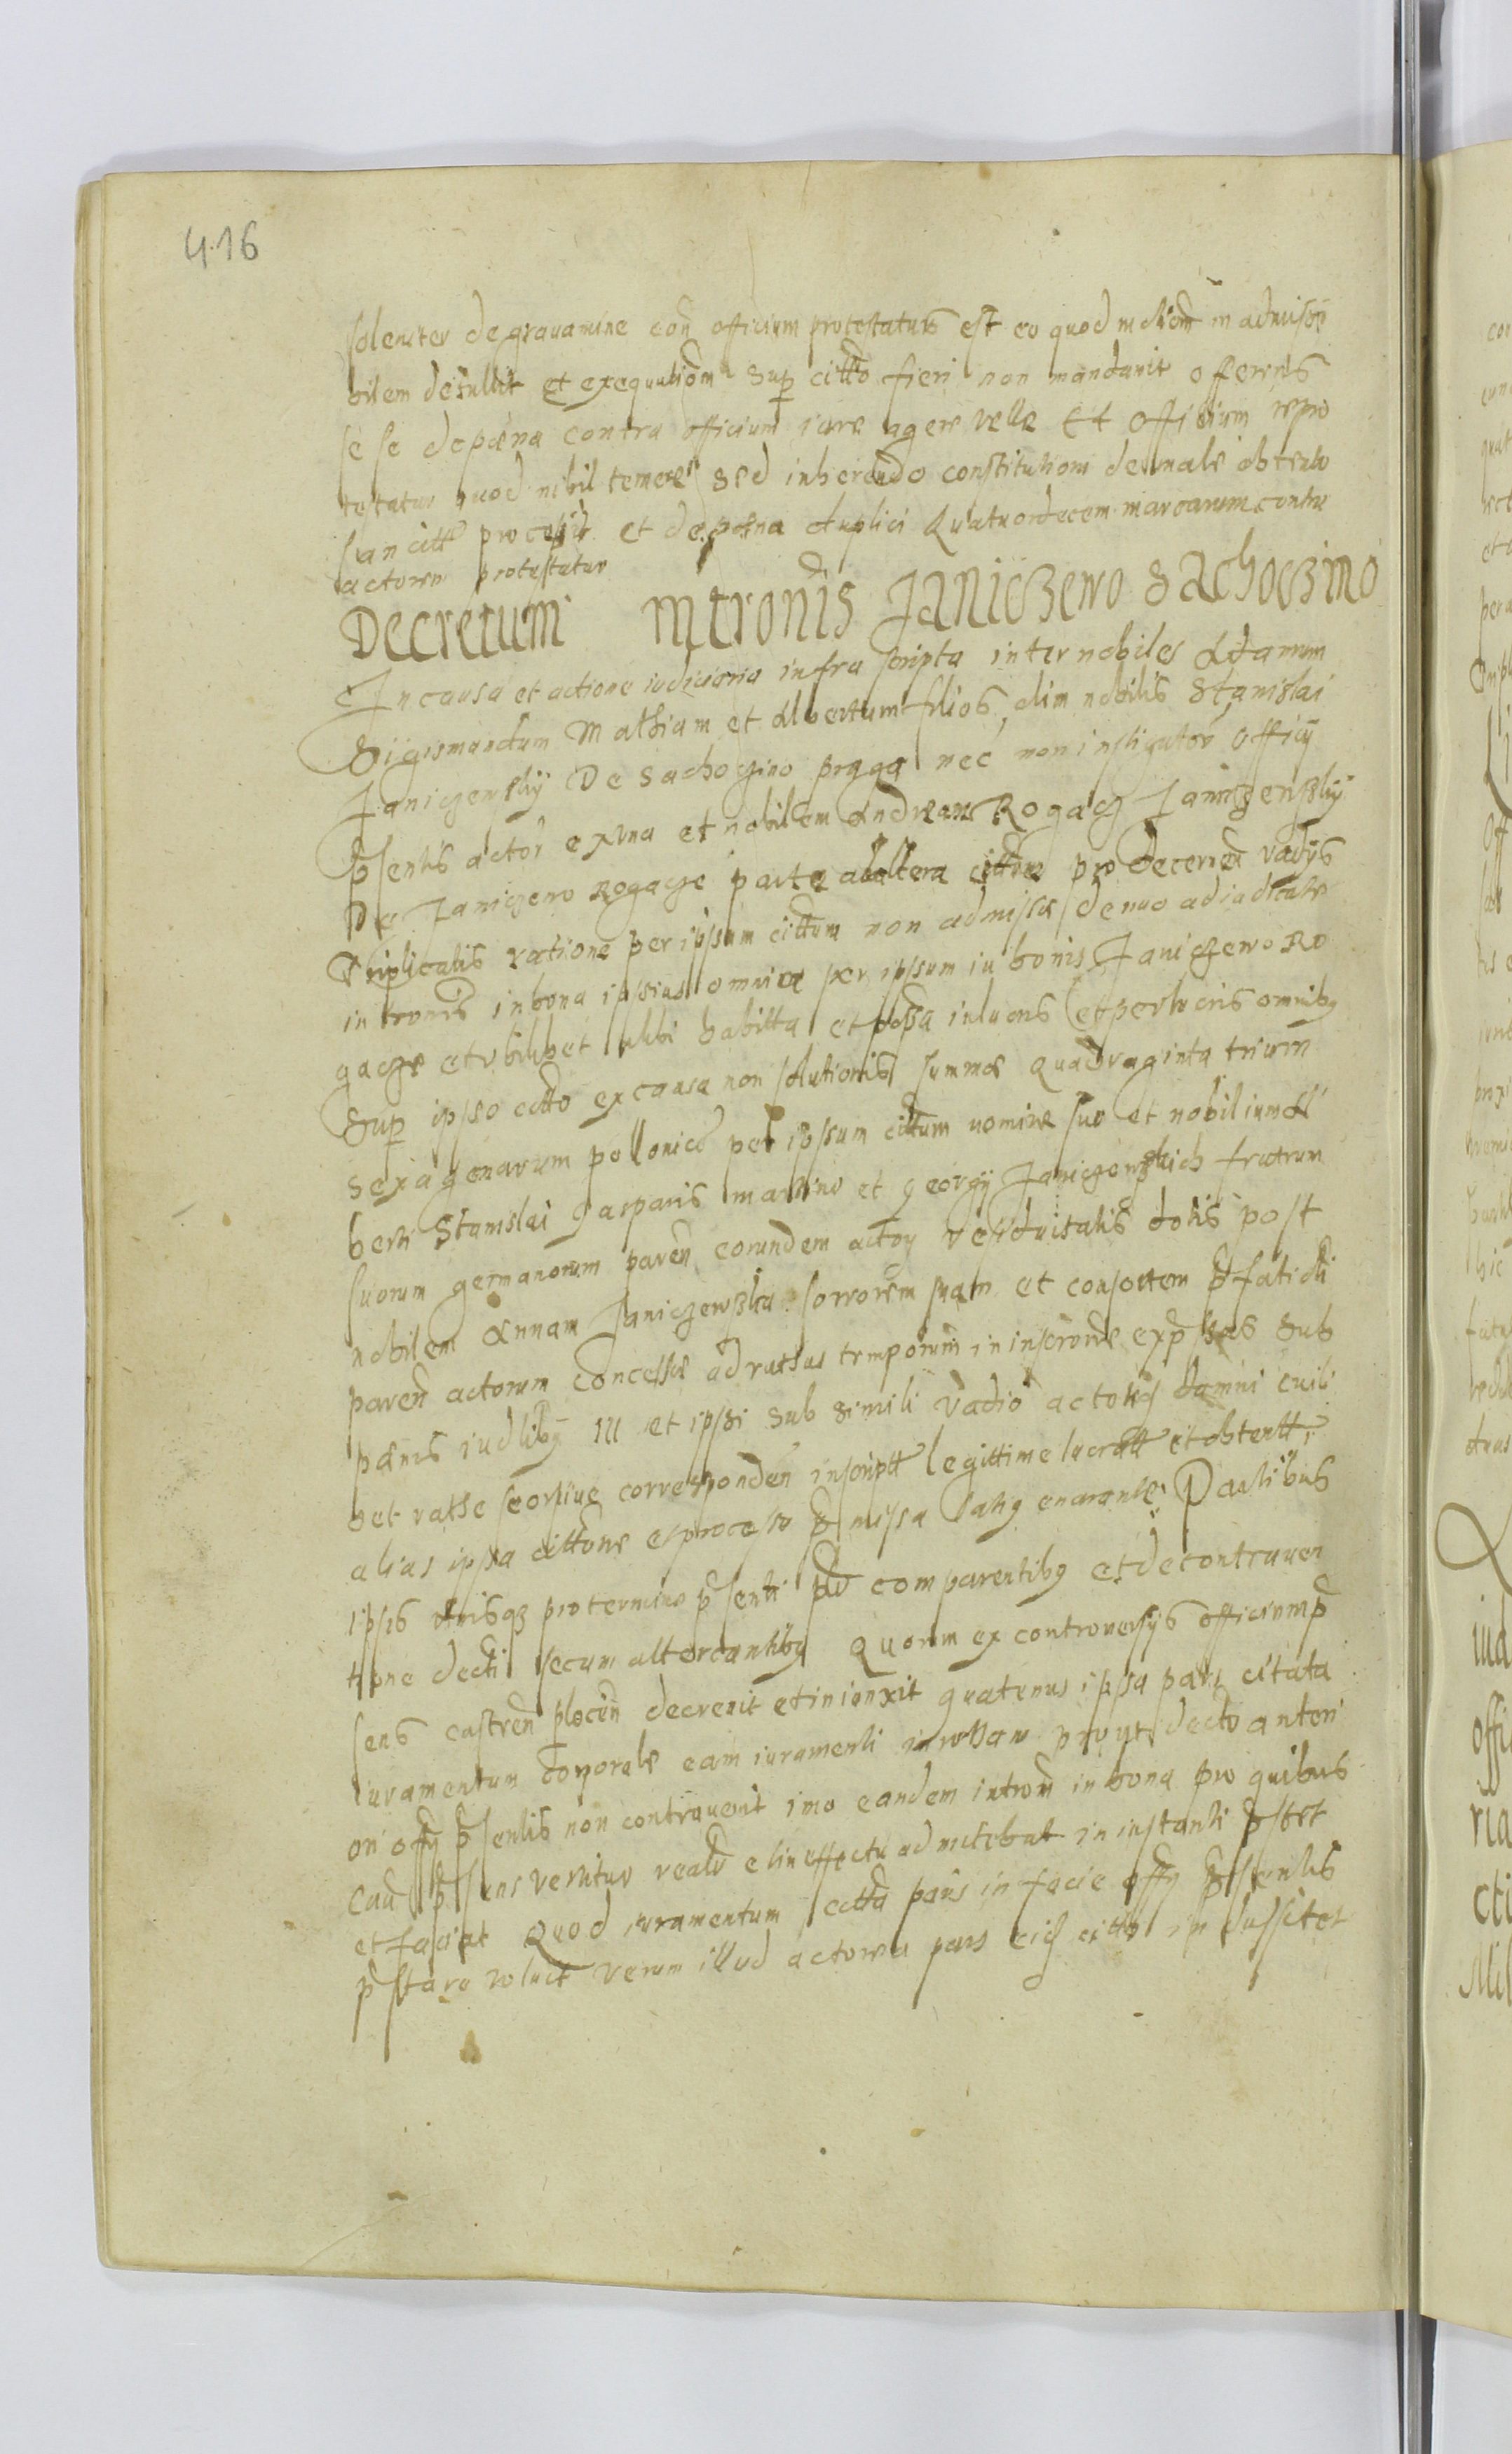 416
solemter de grauamine con officium protestatus est eo quod indiom in admissi
bilem detullit et exequutiom sup citto fieri non mandauit offerens
se se de pæna contra officium iure agere velle Et Officium repro
testatur quod nihil temere sed inherendo constitutioni de male obtento
sancitte processit et de pæna duplici Quatuordecem marcarum contra
actorem protestatur
Decretum Intronis Janiczewo Sachoczino
In causa et actione iudiciaria infra scripta inter nobiles Adamum
Sigismundum Mathiam et Albertum filios olim nobilis Stanislai
Janiczewskij De Sachoczino praga nec non instigator Officij
psentis actor ex vna et nobilem Andream Rogacz Janiczewskij
De Janiczewo Rogacze parte ab altera cittum pro decernen vadijs
Triplicatis ratione per ipsum cittum non admissæ denuo adiudicate
intronis in bona ipsius omnia per ipsum in bonis Janiczewo Ro
gacze et vbilibet alibi habitta et possa in lucris et perlucris omnibq
Sup ipso citto ex causa non solutionis summæ Quadraginta trium
sexagenarum pollonice per ipsum cittum nomine suo et nobilium Al
berti Stanislai Gasparis martino et georgij Janiczewskich fratrum
suorum germanorum paren eorundem actoy residuitatis dotis post
nobilem Annam Janiczewska sororem suam et consortem pfati
paren actorum concessæ ad rathas temporum in inscrone exp ssas Sub
pænis iudlibq et ipsi sub simili vadio actorq damni cuili
bet rathe seorsiue corresponden inscriptt legittime lucratt et obtentt
alias ipsa cittone et processo pmissa latiq enarante Partibus
ipsis vtrisqz pro termino psenti comparentibq et de contrauen
tione decti secum altercantibq Quorum ex controuersijs officium p
sens castren plocen decreuit et iniunxit quatenus ipsa pars citata
iuramentum corporale eam iuramenti in rottam prout decto anteri
ori offij psentis non contrauenit imo eandem introm in bona pro quibus
cau psens vertitur realr et in effectu admitebat in instanti pstet
et faciat Quod iuramentum citta pars in facie offij psentis
pstare voluit verum illud actorea pars citto in